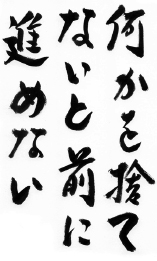 何かを捨て
ないと前に
進めない